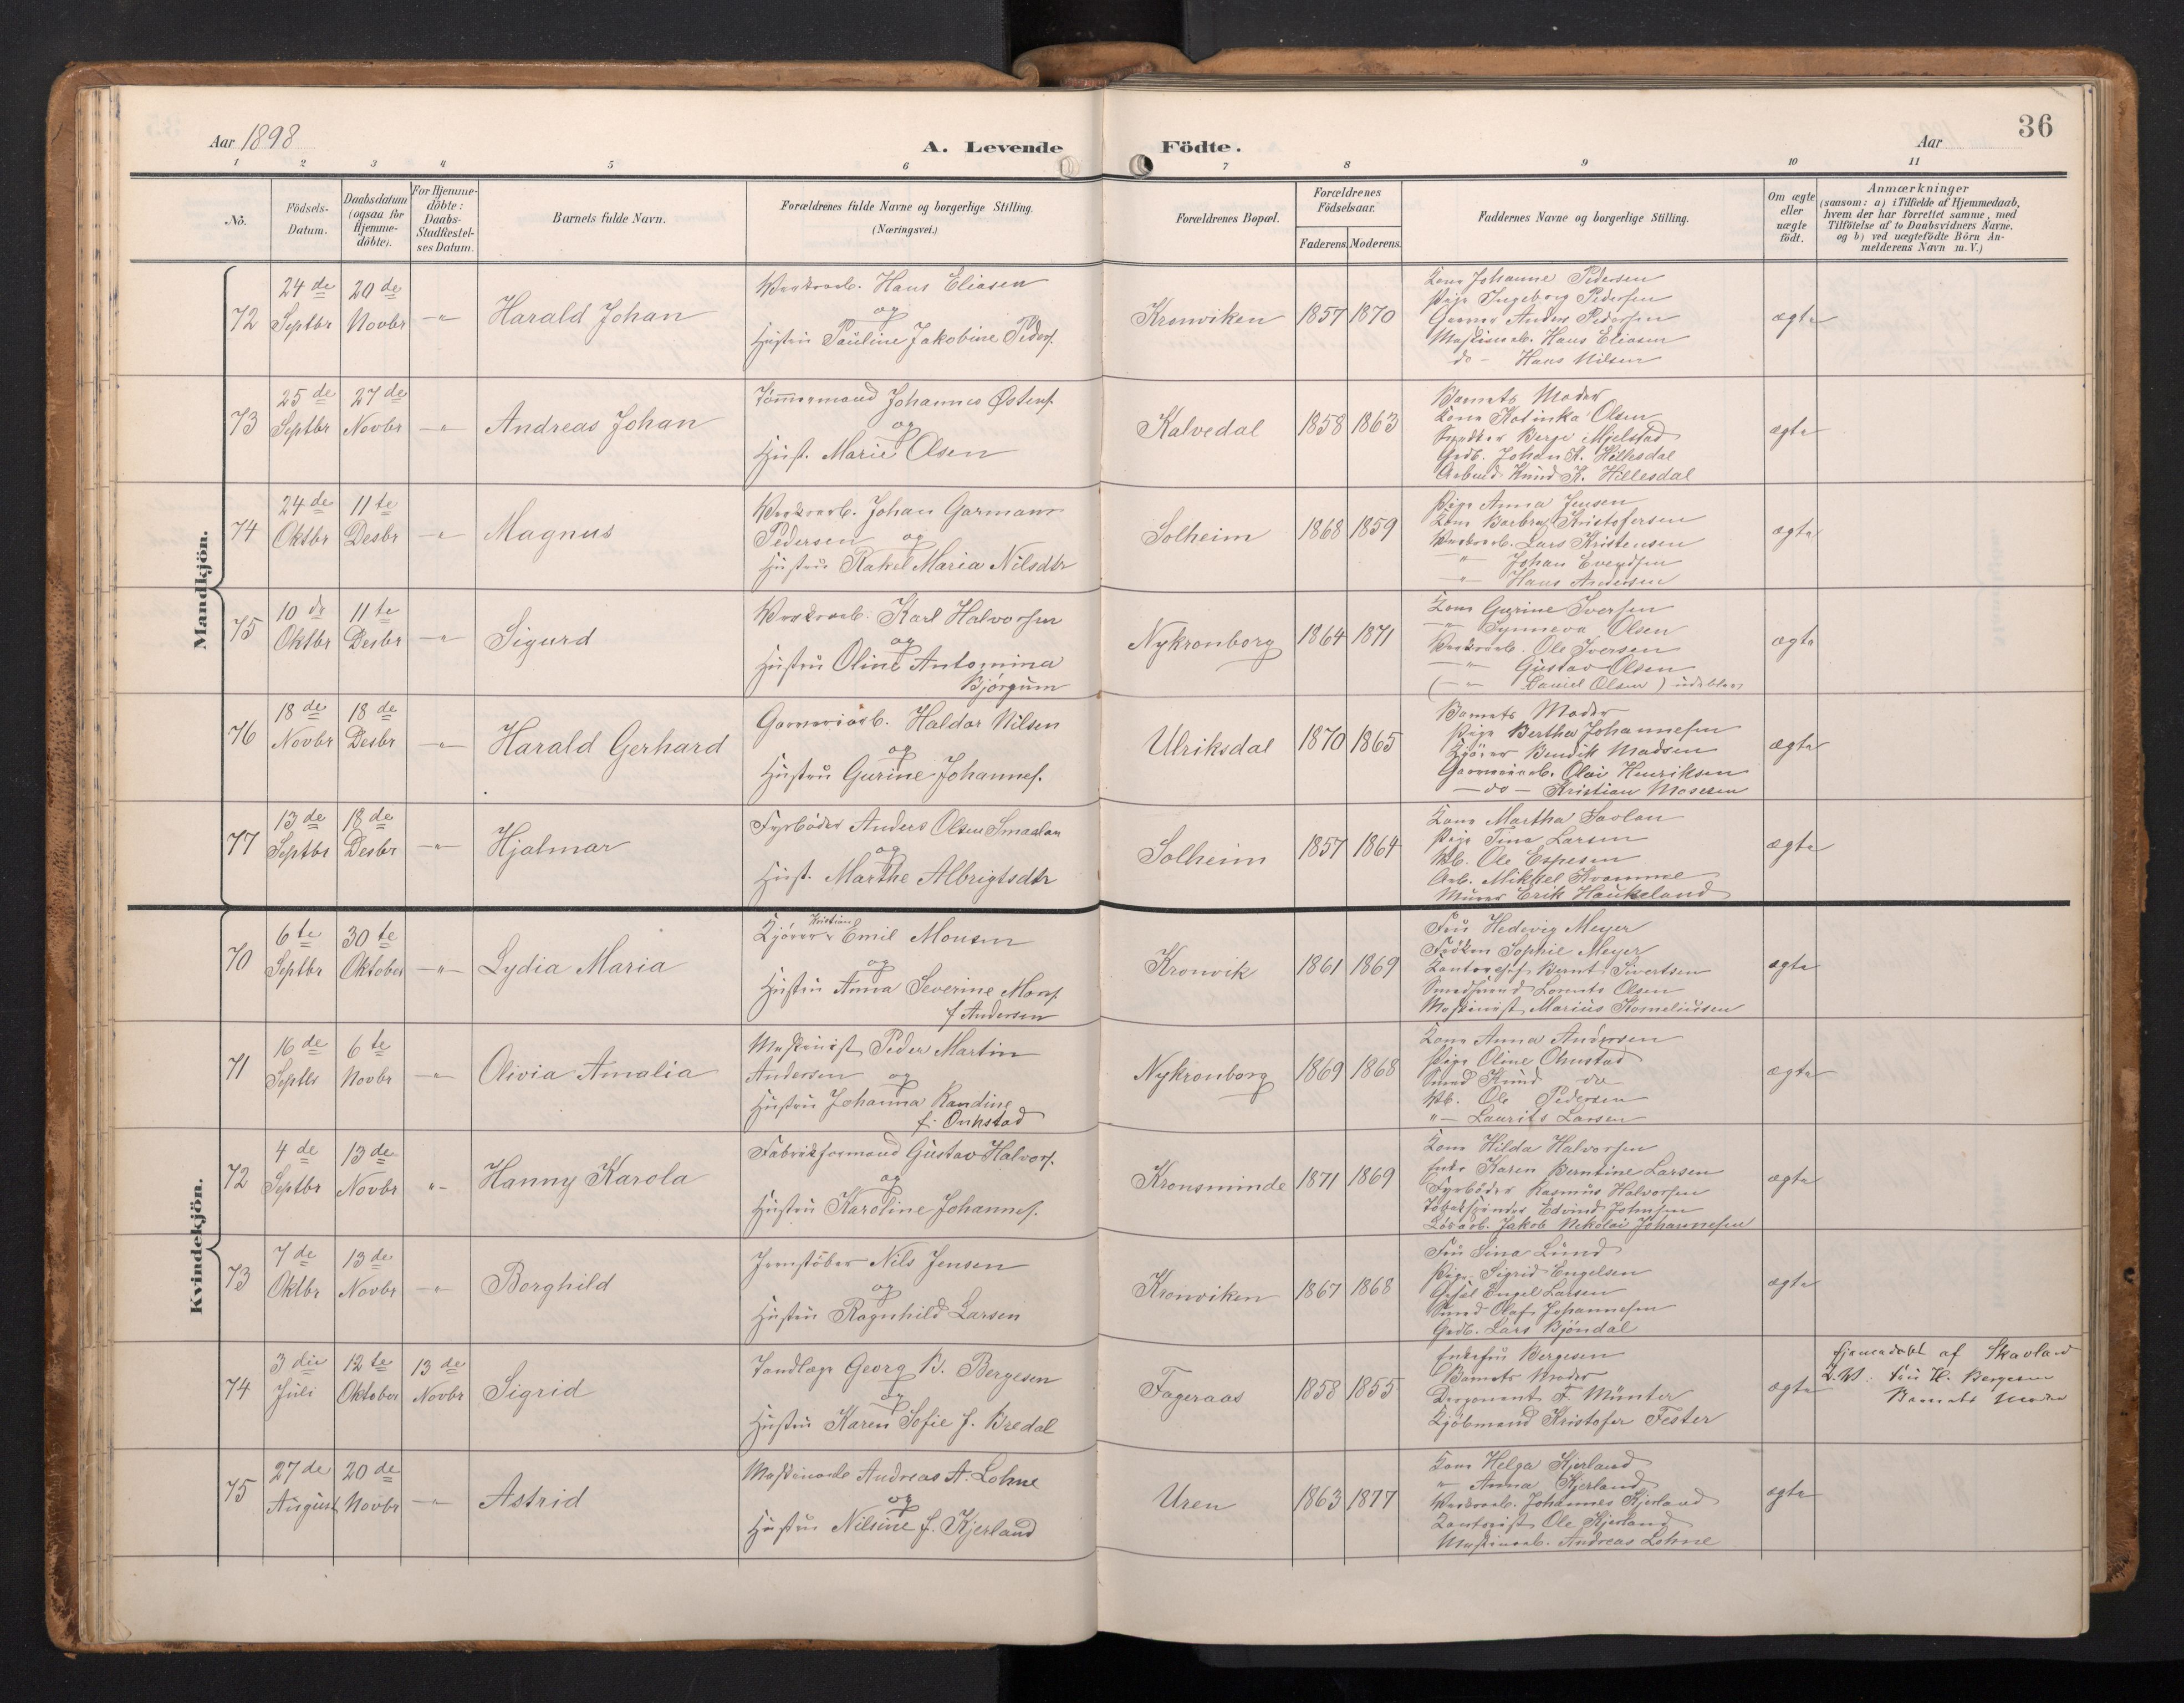 36
Aar 1898
A. Levende Födte.
Aar
1 2 3 4 5 6 7 8 9 10 11
No.
Födsels-
Datum.
Daabsdatum
(ogsaa for
Hjemme-
döbte).
For Hjemme-
döbte:
Daabs-
Stadfæstel-
ses Datum.
Barnets fulde Navn.
Forældrenes fulde Navne og borgerlige Stilling.
(Næringsvei.)
Forældrenes Bopæl.
Forældrenes
Födselsaar.
Faderens. Moderens.
Faddernes Navne og borgerlige Stilling.
Om ægte
eller
uægte
födt.
Anmærkninger
(saasom: a) i Tilfælde af Hjemmedaab,
hvem der har forrettet samme, med
Tilföielse af to Daabsvidners Navne.
og b) ved uægtefödte Börn An-
melderens Navn m. V.)
Mandkjön.
72
24 de
Septbr
20 de
Novbr
-"-
Harald Johan
Hans Eliasen
og
Hustru Pauline Jakobine Peders.
Kronviken
1857 1870
Kone Johanne Pedersen
Pige Ingeborg Pedersen
Anders Pedersen
Maskinarb. Hans Eliasen
do - Hans Nilsen
ægte
73
25 de
Septbr
27 de
Novbr
-"-
Andreas Johan
Tömmermand Johannes Østens.
og
Hust. Marie Olsen
Kalvedal
1858 1863
Barnets Moder
Kone Katinka Olsen
Berge Mjelstad
Grdb. Johan K. Hillesdal
Knud K. Hillesdal
ægte
74
24 de
Oktbr
11 te
Desbr
-"-
Magnus
Verksarb. Johan Garmann
Pedersen og
Hustru Rakel Maria Nilsdtr
Solheim
1868 1859
Pige Anna Jensen
Kone Barbra Kristofersen
Verksarb. Lars Kristensen
" Johan Evendsen
-"- Hans Andersen
ægte
75
10 de
Oktbr
11 te
Desbr
-"-
Sigurd
Verksarb. Karl Halvorsen
og
Hustru Oline Antomina
Bjørgum
Nykronborg
1864 1871
Kone Gurine Iversen
-"- Synneva Olsen
Verksarb. Ole Iversen
-"- Gustav Olsen
(-"- Daniel Olsen) udeblev
ægte
76
18 de
Novbr
18 de
Desbr
-"-
Harald Gerhard
Garveriarb. Haldor Nilsen
og
Hustru Gurine Johannes.
Ulriksdal
1870 1865
Barnets Moder
Pige Bertha Johannesen
Kjörer Bendik Madsen
Garveriarb. Olai Henriksen
- do - Kristian Mosesen
ægte
77
13 de
Septbr
18 de
Desbr
-"-
Hjalmar
Fyrböder Anders Olsen Smaalan
og
Hust. Marthe Albrigtsdtr
Solheim
1857 1864
Kone Martha
Pige Tina Larsen
Vb. Ole Espesen
Arb. Mikkel Kvamme
Murer Erik Haukeland
ægte
Kvindekjön.
70
6 te
Septbr
30 te
Oktober
-"-
Lydia Maria
Kristian
Kjörer Emil Monsen
og
Hustru Anna Severine Mons.
f Andersen
Kronvik
1861 1869
Fru Hedevig Meyer
Fröken Sophie Meyer
Kontorchef Bernt Sivertsen
Lorents Olsen
Maskinist Marius Korneliussen
ægte
71
16 de
Septbr
6 te
Novbr
-"-
Olivia Amalia
Maskinist Peder Martin
Andersen og
Hustru Johanna Randine
f. Onhstad
Nykronborg
1869 1868
Kone Anna Andersen
Pige Oline Ohnstad
Smed Knud do
Vb. Ole Pedersen
"- Laurits Larsen
ægte
72
4 de
Septbr
13 de
Novbr
"-
Hanny Karola
Fabrikformand Gustav Halvors.
og
Hustru Karoline Johannes.
Kronsminde
1871 1869
Kone Hilda Halvorsen
Enke Karen Berntine Larsen
Fyrböder Rasmus Halvorsen
Tobakspinder Edvind Johnsen
Jakob Nikolai Johannesen
ægte
73
7 de
Oktbr
13 de
Novbr
-"-
Borghild
Jernstöber Nils Jensen
og
Hustru Ragnhild Larsen
Kronviken
1867 1868
Fru Sina Lund
Pige Sigrid Engelsen
Engel Larsen
Smed Olaf Johannesen
Grdb. Lars Bjöndal
ægte
74
3 die
Juli
12 te
Oktober
13 de
Novbr
Sigrid
Tandlæge Georg B. Bergesen
og
Hustru Karen Sofie f. Bredal
Fageraas
1858 1855
Enkefru Bergesen
Barnets Moder
F. Münter
Kjöbmand Kristofer Fester
ægte
Hjemmedöbt af Skavland
D.V.: Fru H. Bergesen
Barnets Moder
75
27 de
August
20 de
Novbr
-"-
Astrid
Maskinarb. Andreas A. Lohne
og
Hustru Nilsine f. Kjerland
Uren
1863 1877
Kone Helga Kjerland
" Anna Kjerland
Verksarb. Johannes Kjerland
Kontorist Ole Kjerland
Maskinarb. Andreas Lohne
ægte